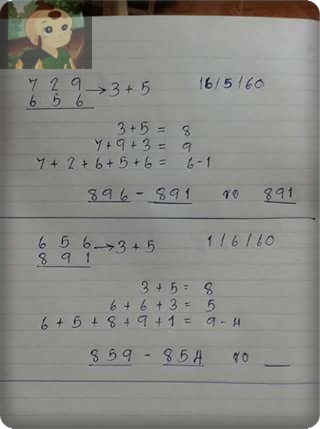 7 2 9 → 3 + 5 16/5/60
6 5 6
3 + 5 = 8
7 + 9 + 3 = 9
7 + 2 + 6 + 5 + 6 = 6 - 1
896 - 891 891
6 5 6 → 3 + 5 1/6/60
8 9 1
3 + 5 = 8
6 + 6 + 3 = 5
6 + 5 + 8 + 9 + 1 = 9 - 4
859 - 854